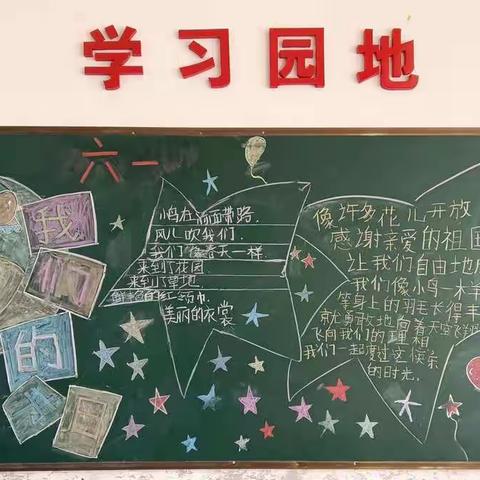 学习园地
六一
我
们
的
小鸟在前面带路,
风儿吹我们.
我们像春天一样.
来到了花园
来到了草地
的红领巾,
美丽的衣裳
像许多花儿开放
感谢亲爱的祖国
让我们自由地成
我们像小鸟一木羊
等身上的羽毛长得丰
就勇敢地向着天空飞翔
飞向我们的理想
我们一起度过这快乐
的时光.